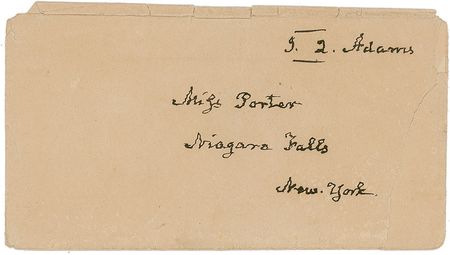 J. Q. Adams
Miss Porter
Niagara Falls
New. York.